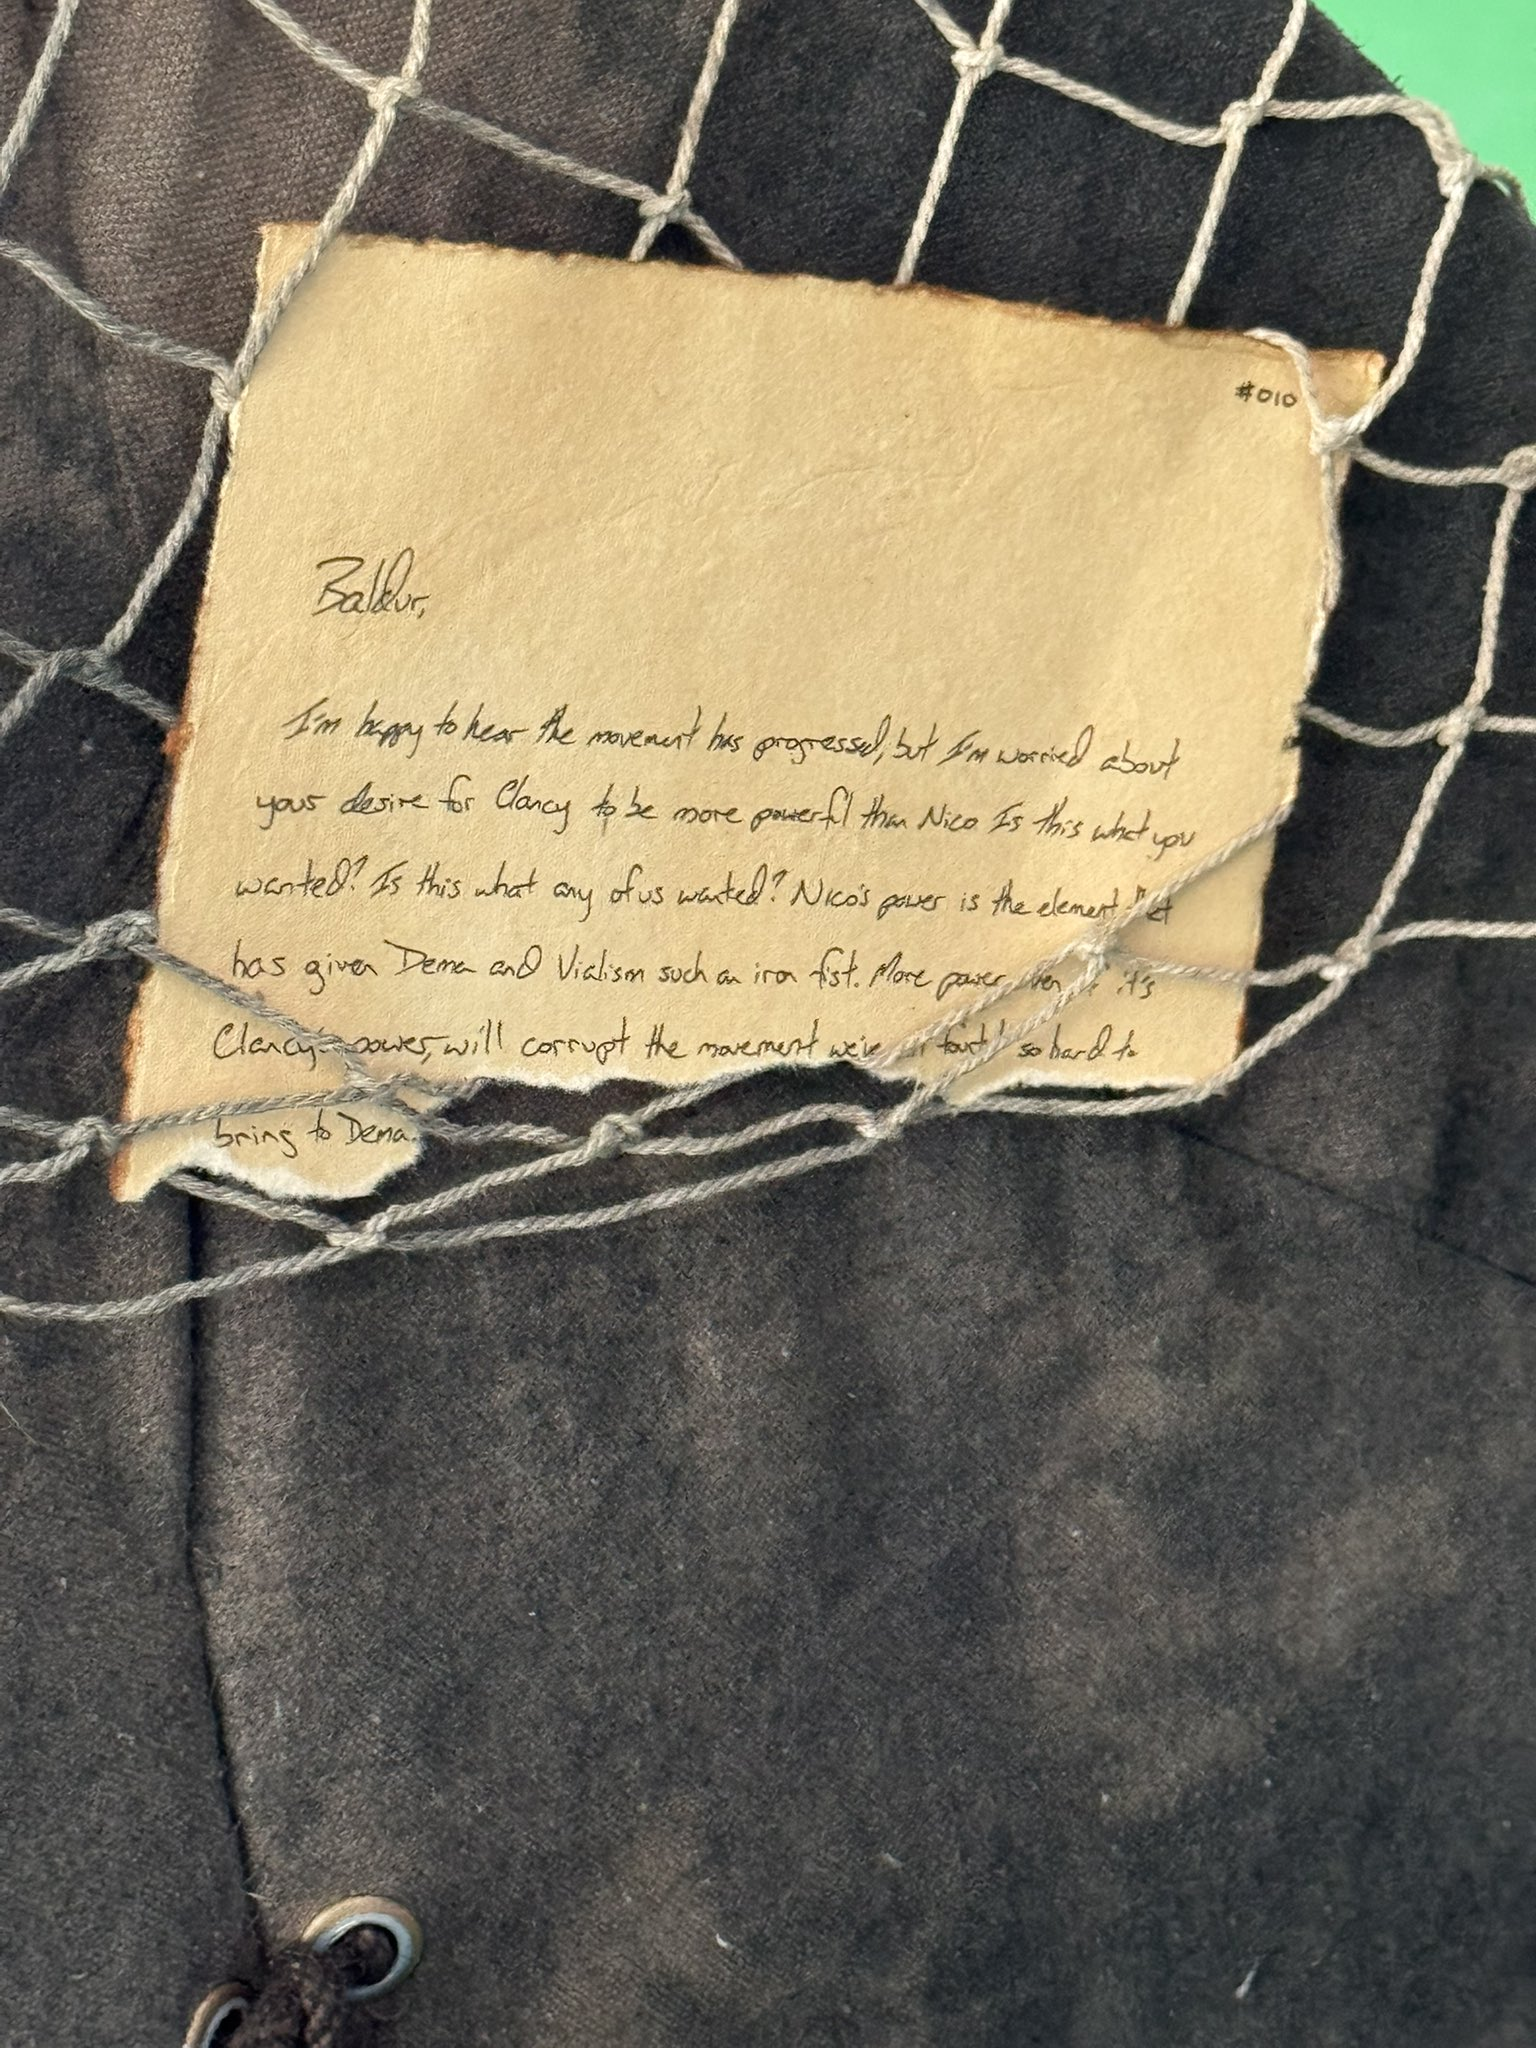 #010
Baldur,
I'm happy to hear the movement has progressed, but I'm worried about
your desire for Clancy to be more powerful than Nico Is this what you
wanted? Is this what any of us wanted? Nico's power is the element
has given Dema and Vialism such an iron fist. More power it's
Clancy's power, will corrupt the movement we've so hard to
bring to Dema.